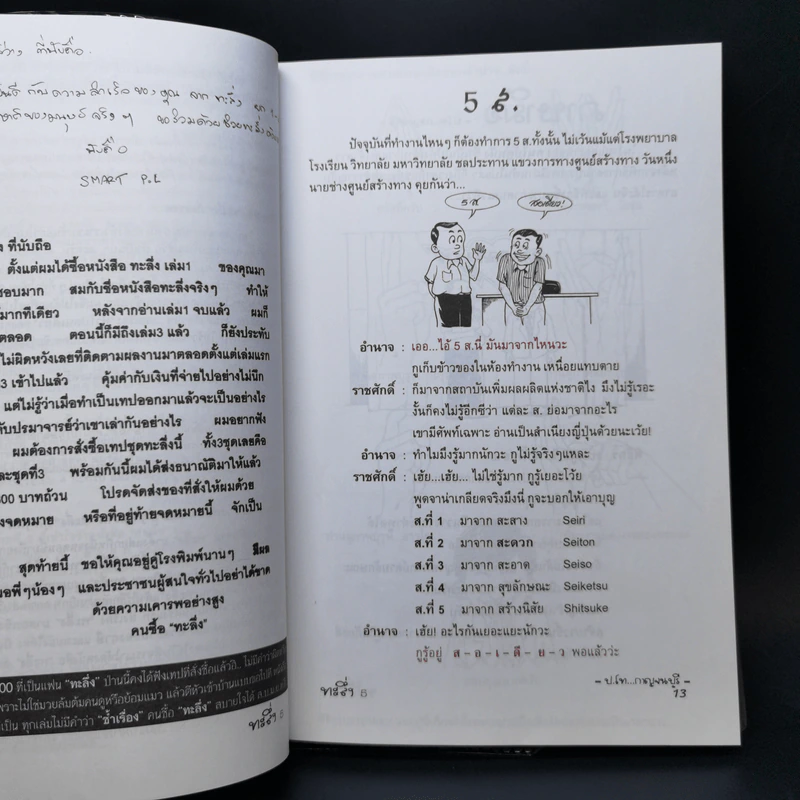 ที่นับถือ.
นับถือ
SMART P.L
ที่นับถือ
ตั้งแต่ผมได้ซื้อหนังสือ ทะลึ่ง เล่ม1 ของคุณมา
ชอบมาก สมกับชื่อหนังสือทะลึ่งจริงๆ ทำให้
มากทีเดียว หลังจากอ่านเล่ม1 จบแล้ว ผมก็
ตลอด ตอนนี้ก็มีถึงเล่ม3 แล้ว ก็ยังประทับ
ไม่ผิดหวังเลยที่ติดตามผลงานมาตลอดตั้งแต่เล่มแรก
3 เข้าไปแล้ว คุ้มค่ากับเงินที่จ่ายไปอย่างไม่นึก
แต่ไม่รู้ว่าเมื่อทำเป็นเทปออกมาแล้วจะเป็นอย่างไร
กับปรมาจารย์ว่าเขาเล่ากันอย่างไร ผมอยากฟัง
ผมต้องการสั่งซื้อเทปชุดทะลึ่งนี้ ทั้ง3ชุดเลยคือ
ละชุดที่3 พร้อมกันนี้ผมได้ส่งธนาณัติมาให้แล้ว
00 บาทถ้วน โปรดจัดส่งของที่สั่งให้ผมด้วย
จดหมาย หรือที่อยู่ท้ายจดหมายนี้ จักเป็น
สุดท้ายนี้ ขอให้คุณอยู่คู่โรงพิมพ์นานๆ มีผล
พี่ๆน้องๆ และประชาชนผู้สนใจทั่วไปอย่าได้ขาด
ด้วยความเคารพอย่างสูง
คนซื้อ "ทะลึ่ง"
00 ที่เป็นแฟน "ทะลึ่ง" ป่านนี้คงได้ฟังเทปที่สั่งซื้อแล้ว
ทุกเล่มไม่มีคำว่า "ซ้ำเรื่อง" คนซื้อ "ทะลึ่ง" สบายใจได้
ทะลึ่ง 5
5 ส.
ปัจจุบันที่ทำงานไหนๆ ก็ต้องทำการ 5 ส.ทั้งนั้น ไม่เว้นแม้แต่โรงพยาบาล
โรงเรียน วิทยาลัย มหาวิทยาลัย ชลประทาน แขวงการทางศูนย์สร้างทาง วันหนึ่ง
นายช่างศูนย์สร้างทาง คุยกันว่า...
5 ส
อำนาจ : เออ...ไอ้ 5 ส.นี่ มันมาจากไหนวะ
กูเก็บข้าวของในห้องทำงาน เหนื่อยแทบตาย
ราชศักดิ์ : ก็มาจากสถาบันเพิ่มผลผลิตแห่งชาติไง มึงไม่รู้เรอะ
งั้นก็คงไม่รู้อีกซีว่า แต่ละ ส. ย่อมาจากอะไร
เขามีศัพท์เฉพาะ อ่านเป็นสำเนียงญี่ปุ่นด้วยนะเว้ย!
อำนาจ : ทำไมมึงรู้มากนักวะ กูไม่รู้จริงๆแหละ
ราชศักดิ์ : เฮ้ย...เฮ้ย... ไม่ใช่รู้มาก กูรู้เยอะโว้ย
พูดจาน่าเกลียดจริงมึงนี่ กูจะบอกให้เอาบุญ
ส.ที่ 1 มาจาก สะสาง Seiri
ส.ที่ 2 มาจาก สะดวก Seiton
ส.ที่ 3 มาจาก สะอาด Seiso
ส.ที่ 4 มาจาก สุขลักษณะ Seiketsu
ส.ที่ 5 มาจาก สร้างนิสัย Shitsuke
อำนาจ : เฮ้ย! อะไรกันเยอะแยะนักวะ
กูรู้อยู่ ส - อ - เ - สี - ย - ว พอแล้วว่ะ
ทะลึ่ง 5
13